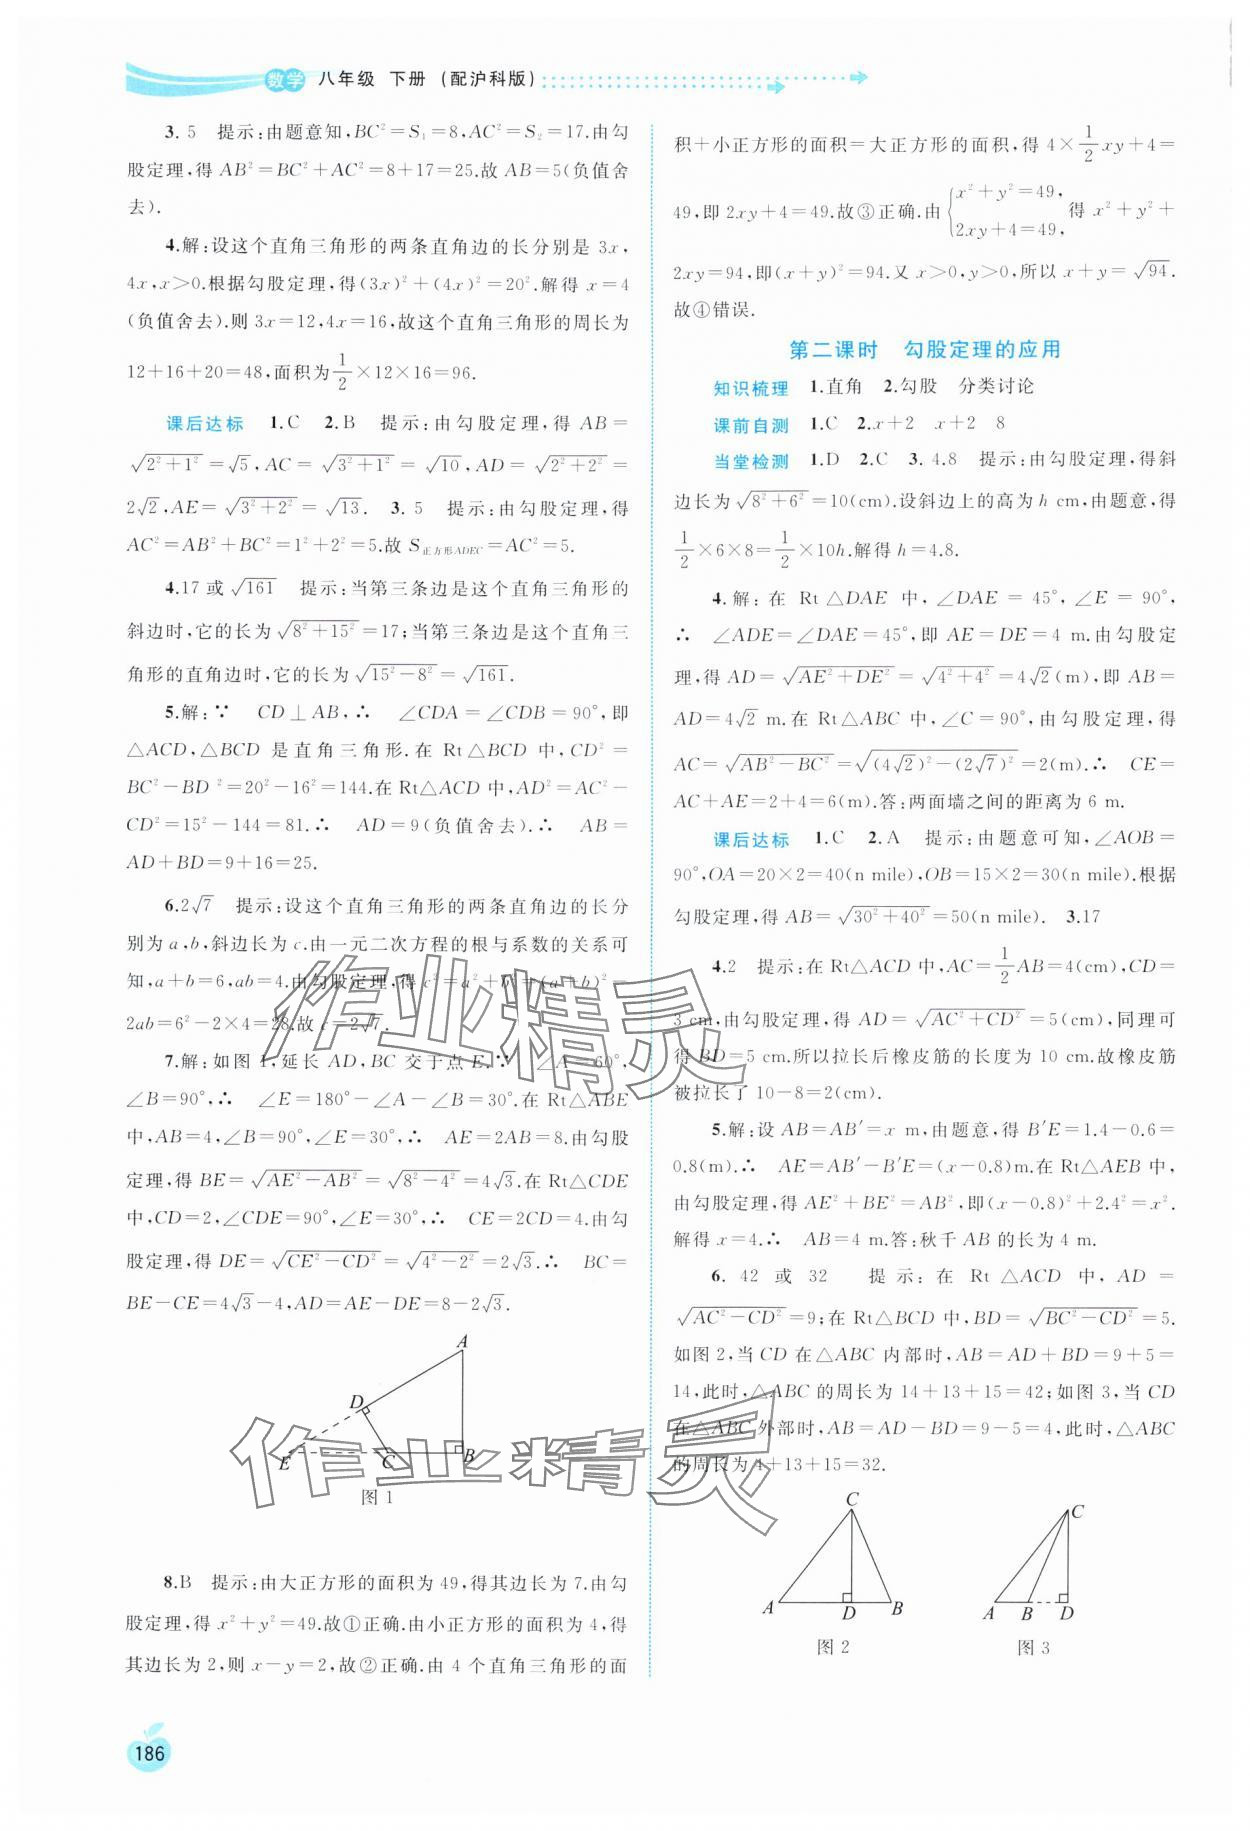 数学 八年级 下册 (配沪科版)
3. 5 提示:由题意知,BC²=S₁=8,AC²=S₂=17.由勾
股定理,得 AB²=BC²+AC²=8+17=25.故 AB=5(负值舍
去).
4.解:设这个直角三角形的两条直角边的长分别是 3x,
4x,x>0.根据勾股定理,得(3x)²+(4x)²=20².解得 x=4
(负值舍去).则 3x=12,4x=16,故这个直角三角形的周长为
12+16+20=48,面积为1/2×12×16=96.
课后达标 1.C 2.B 提示:由勾股定理,得 AB=
√(2²+1²)=√5,AC=√(3²+1²)=√10,AD=√(2²+2²)=
2√2,AE=√(3²+2²)=√13. 3. 5 提示:由勾股定理,得
AC²=AB²+BC²=1²+2²=5.故 S正方形ADEC=AC²=5.
4.17 或√161 提示:当第三条边是这个直角三角形的
斜边时,它的长为√(8²+15²)=17;当第三条边是这个直角三
角形的直角边时,它的长为√(15²-8²)=√161.
5.解:∵ CD⊥AB,∴ ∠CDA=∠CDB=90°,即
△ACD,△BCD 是直角三角形.在 Rt△BCD 中,CD²=
BC²-BD²=20²-16²=144.在 Rt△ACD 中,AD²=AC²-
CD²=15²-144=81.∴ AD=9(负值舍去).∴ AB=
AD+BD=9+16=25.
6.2√7 提示:设这个直角三角形的两条直角边的长分
别为 a,b,斜边长为 c.由一元二次方程的根与系数的关系可
知,a+b=6,ab=4.由勾股定理,得 c²=a²+b²=(a+b)²-
2ab=6²-2×4=28.故 c=2√7.
7.解:如图 1,延长 AD,BC 交于点 E.∵ ∠A=60°,
∠B=90°,∴ ∠E=180°-∠A-∠B=30°.在 Rt△ABE
中,AB=4,∠B=90°,∠E=30°,∴ AE=2AB=8.由勾股
定理,得 BE=√(AE²-AB²)=√(8²-4²)=4√3.在 Rt△CDE
中,CD=2,∠CDE=90°,∠E=30°,∴ CE=2CD=4.由勾
股定理,得 DE=√(CE²-CD²)=√(4²-2²)=2√3.∴ BC=
BE-CE=4√3-4,AD=AE-DE=8-2√3.
A
D
E C B
图 1
8.B 提示:由大正方形的面积为 49,得其边长为 7.由勾
股定理,得 x²+y²=49.故①正确.由小正方形的面积为 4,得
其边长为 2,则 x-y=2,故②正确.由 4 个直角三角形的面
积+小正方形的面积=大正方形的面积,得 4×1/2xy+4=
49,即 2xy+4=49.故③正确.由{x²+y²=49, 2xy+4=49, 得 x²+y²+
2xy=94,即(x+y)²=94.又 x>0,y>0,所以 x+y=√94.
故④错误.
第二课时 勾股定理的应用
知识梳理 1.直角 2.勾股 分类讨论
课前自测 1.C 2.x+2 x+2 8
当堂检测 1.D 2.C 3. 4.8 提示:由勾股定理,得斜
边长为√(8²+6²)=10(cm).设斜边上的高为 h cm,由题意,得
1/2×6×8=1/2×10h.解得 h=4.8.
4.解:在 Rt△DAE 中,∠DAE=45°,∠E=90°,
∴ ∠ADE=∠DAE=45°,即 AE=DE=4 m.由勾股定
理,得 AD=√(AE²+DE²)=√(4²+4²)=4√2(m),即 AB=
AD=4√2 m.在 Rt△ABC 中,∠C=90°,由勾股定理,得
AC=√(AB²-BC²)=√((4√2)²-(2√7)²)=2(m).∴ CE=
AC+AE=2+4=6(m).答:两面墙之间的距离为 6 m.
课后达标 1.C 2.A 提示:由题意可知,∠AOB=
90°,OA=20×2=40(n mile),OB=15×2=30(n mile).根据
勾股定理,得 AB=√(30²+40²)=50(n mile). 3.17
4.2 提示:在 Rt△ACD 中,AC=1/2AB=4(cm),CD=
3 cm,由勾股定理,得 AD=√(AC²+CD²)=5(cm),同理可
得 BD=5 cm.所以拉长后橡皮筋的长度为 10 cm.故橡皮筋
被拉长了 10-8=2(cm).
5.解:设 AB=AB′=x m,由题意,得 B′E=1.4-0.6=
0.8(m).∴ AE=AB′-B′E=(x-0.8)m.在 Rt△AEB 中,
由勾股定理,得 AE²+BE²=AB²,即(x-0.8)²+2.4²=x².
解得 x=4.∴ AB=4 m.答:秋千 AB 的长为 4 m.
6. 42 或 32 提示:在 Rt△ACD 中,AD=
√(AC²-CD²)=9;在 Rt△BCD 中,BD=√(BC²-CD²)=5.
如图 2,当 CD 在△ABC 内部时,AB=AD+BD=9+5=
14,此时,△ABC 的周长为 14+13+15=42;如图 3,当 CD
在△ABC 外部时,AB=AD-BD=9-5=4,此时,△ABC
的周长为 4+13+15=32.
C
A D B
图 2
C
A B D
图 3
作业精灵
作业精灵
186